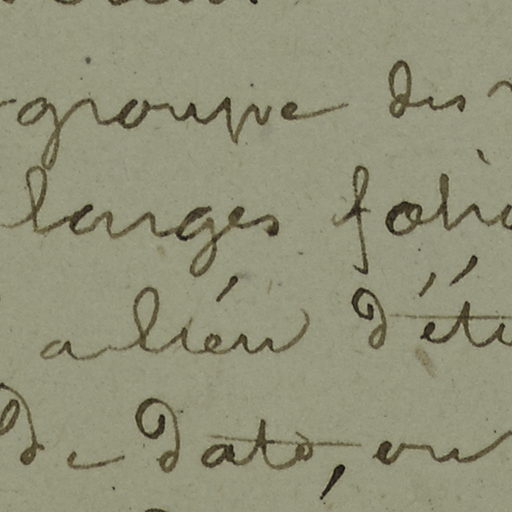 groupe des
longes folio
a lieu d'étu
de dato, ou